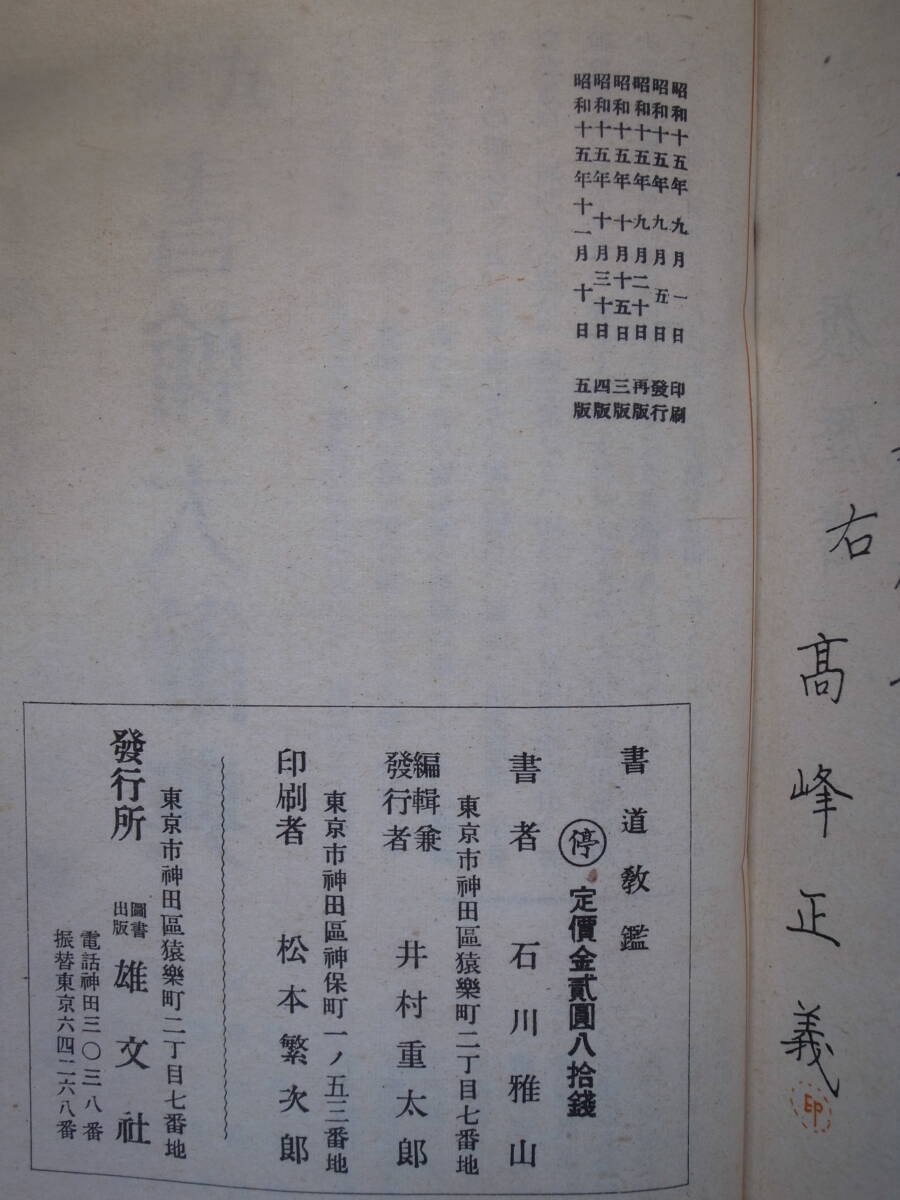 右
髙峰正義
印
昭和十五年九月一日印刷
昭和十五年九月五日發行
昭和十五年九月二十日再版
昭和十五年十月十五日三版
昭和十五年十月三十日四版
昭和十五年十一月十日五版
書道教鑑
停 定價金貳圓八拾錢
書者 石川雅山
東京市神田區猿樂町二丁目七番地
編輯兼發行者 井村重太郎
東京市神田區神保町一ノ五三番地
印刷者 松本繁次郎
東京市神田區猿樂町二丁目七番地
發行所 圖書出版 雄文社
電話神田三〇三八番
振替東京六四二六八番